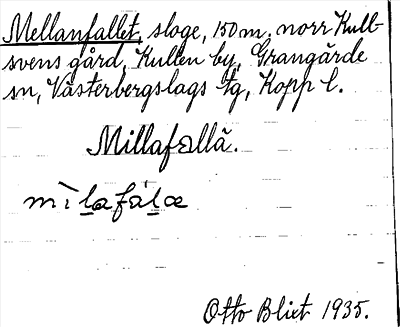 Mellanfallet, sloge, 150 m. norr Kull-
svens gård, Kullen by, Grangärde
sn, Västerbergslags tg, Kopp l.
Millafallä.
mìlafálæ
Otto Blixt 1935.